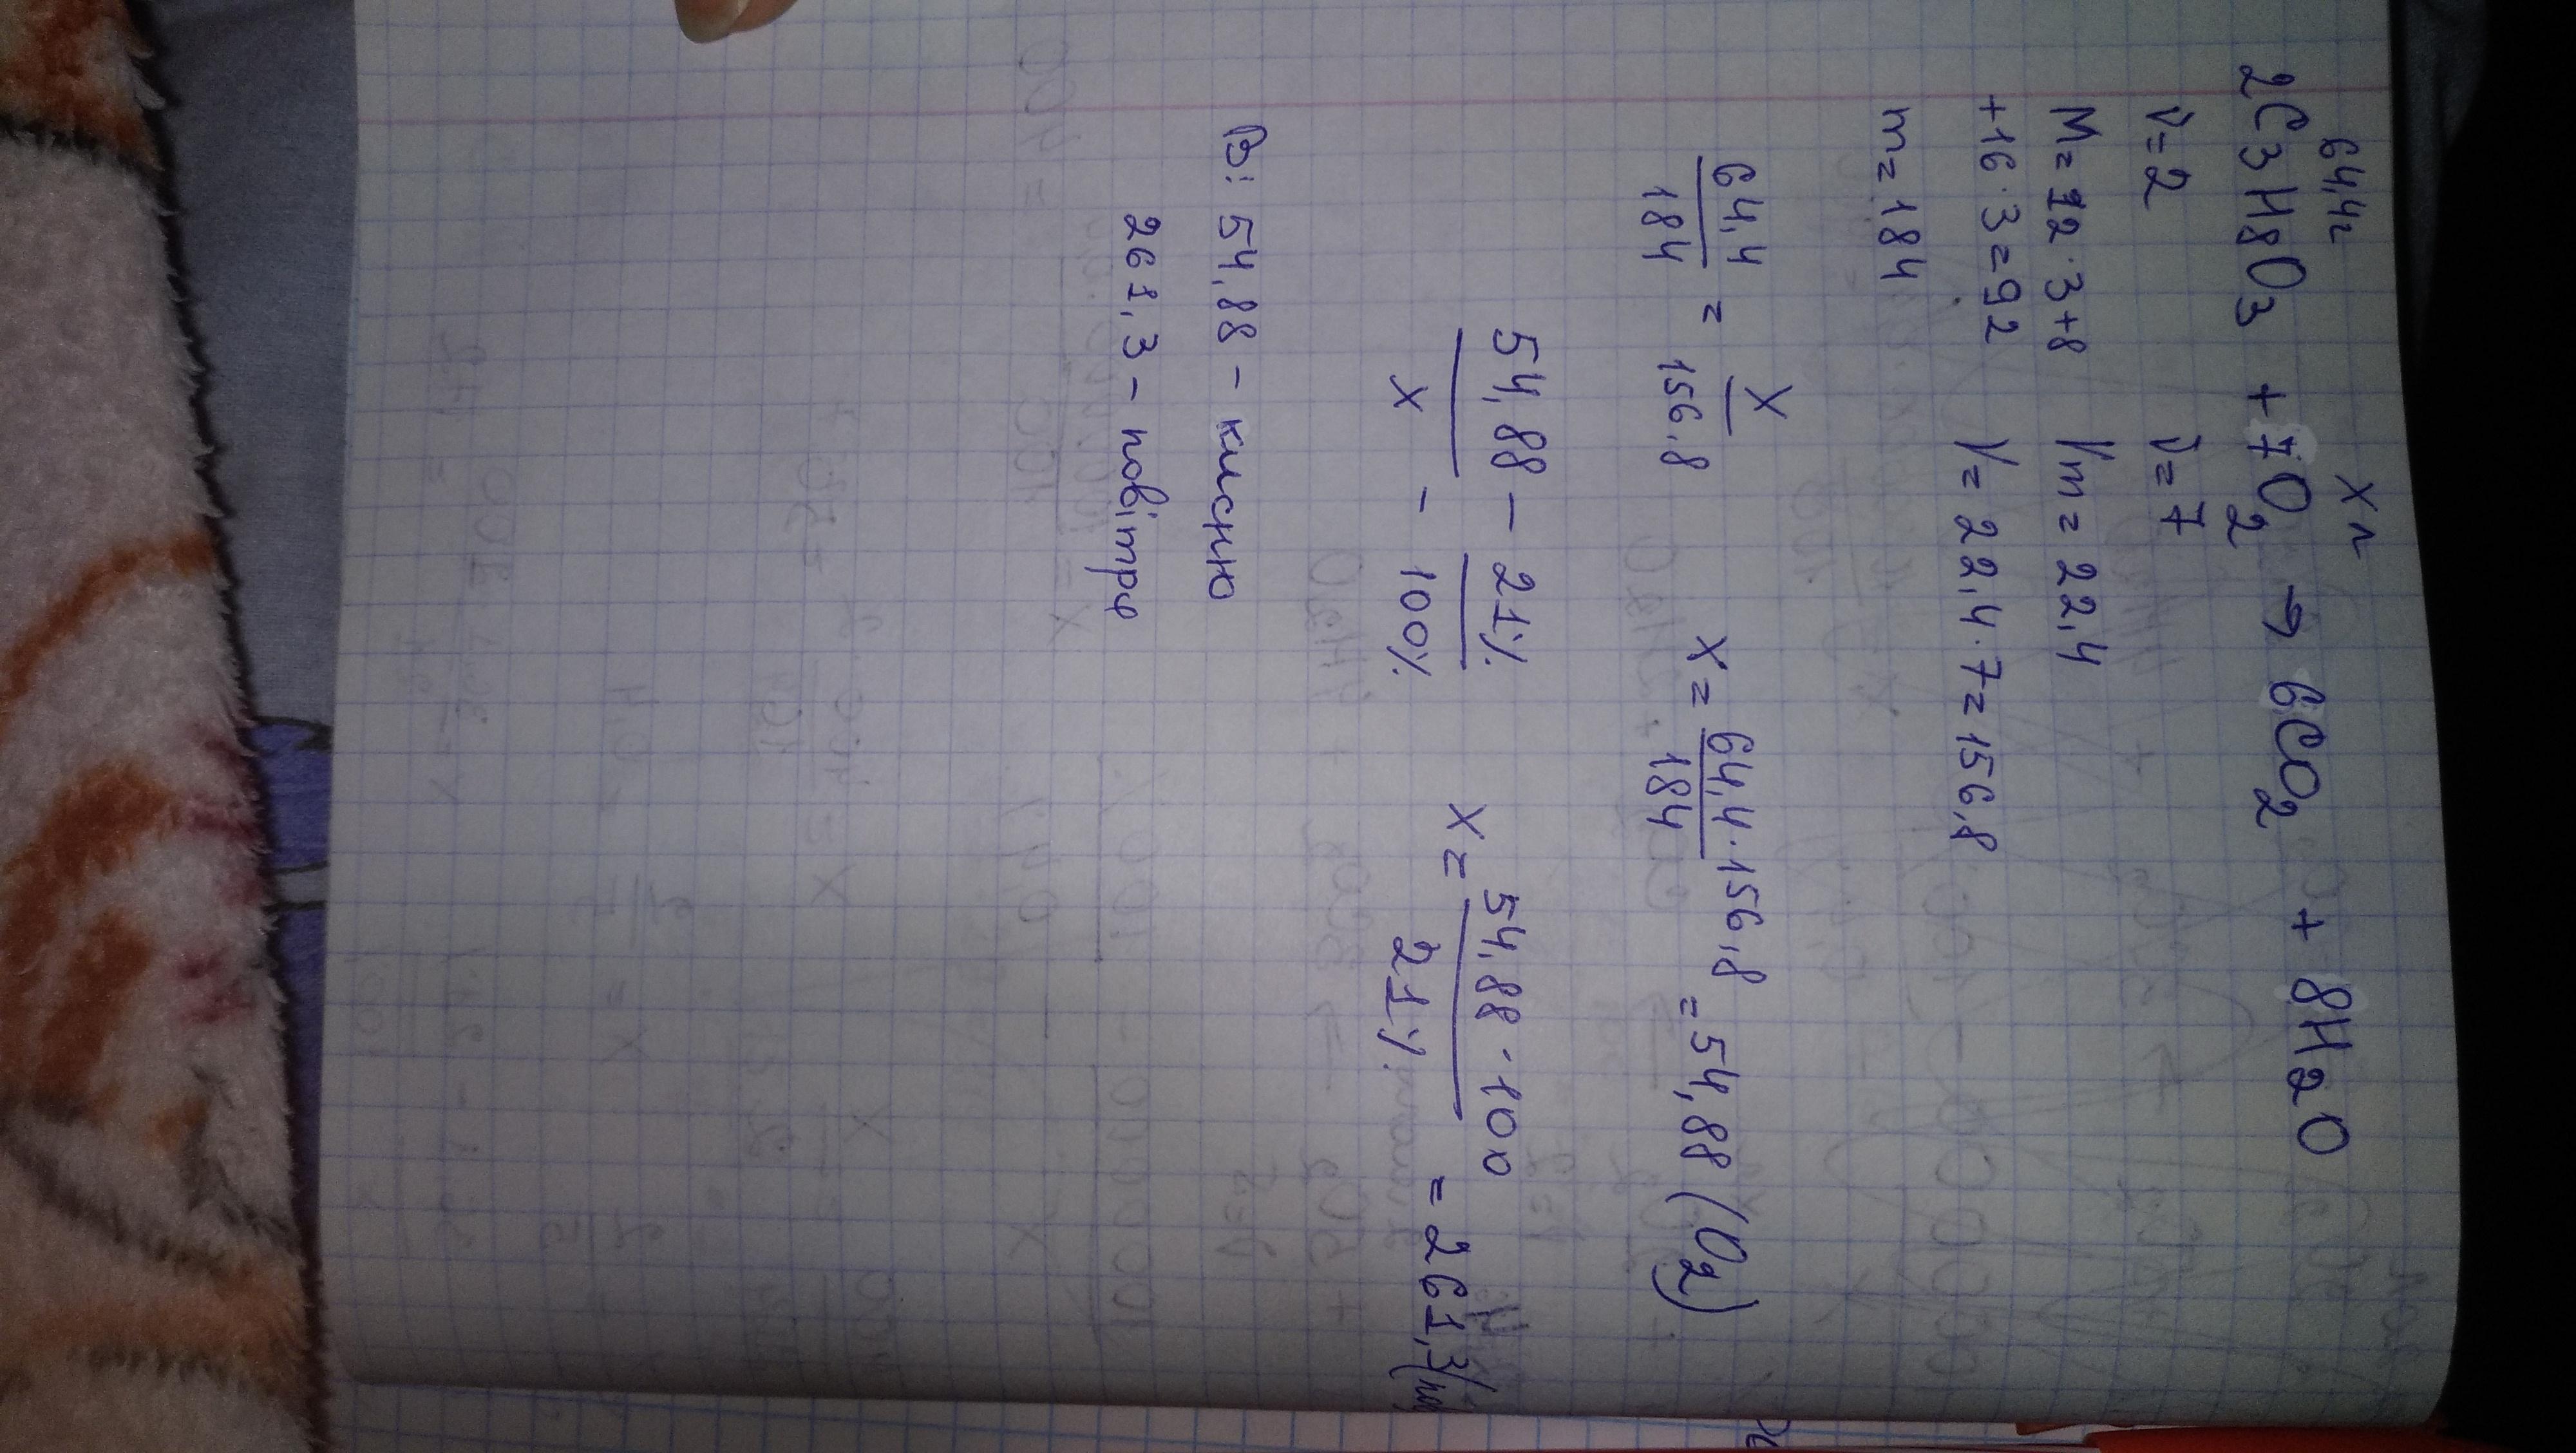 64,4г xл
2C3H8O3 + 7O2 → 6CO2 + 8H2O
ν=2 ν=7
M=12·3+8 Vm=22,4
+16·3=92 V=22,4·7=156,8
m=184
64,4/184 = x/156,8 x=64,4·156,8/184 =54,88 (O2)
54,88 – 21%
x – 100% x=54,88·100/21% =261,3
В: 54,88 – кисню
261,3 – повітря